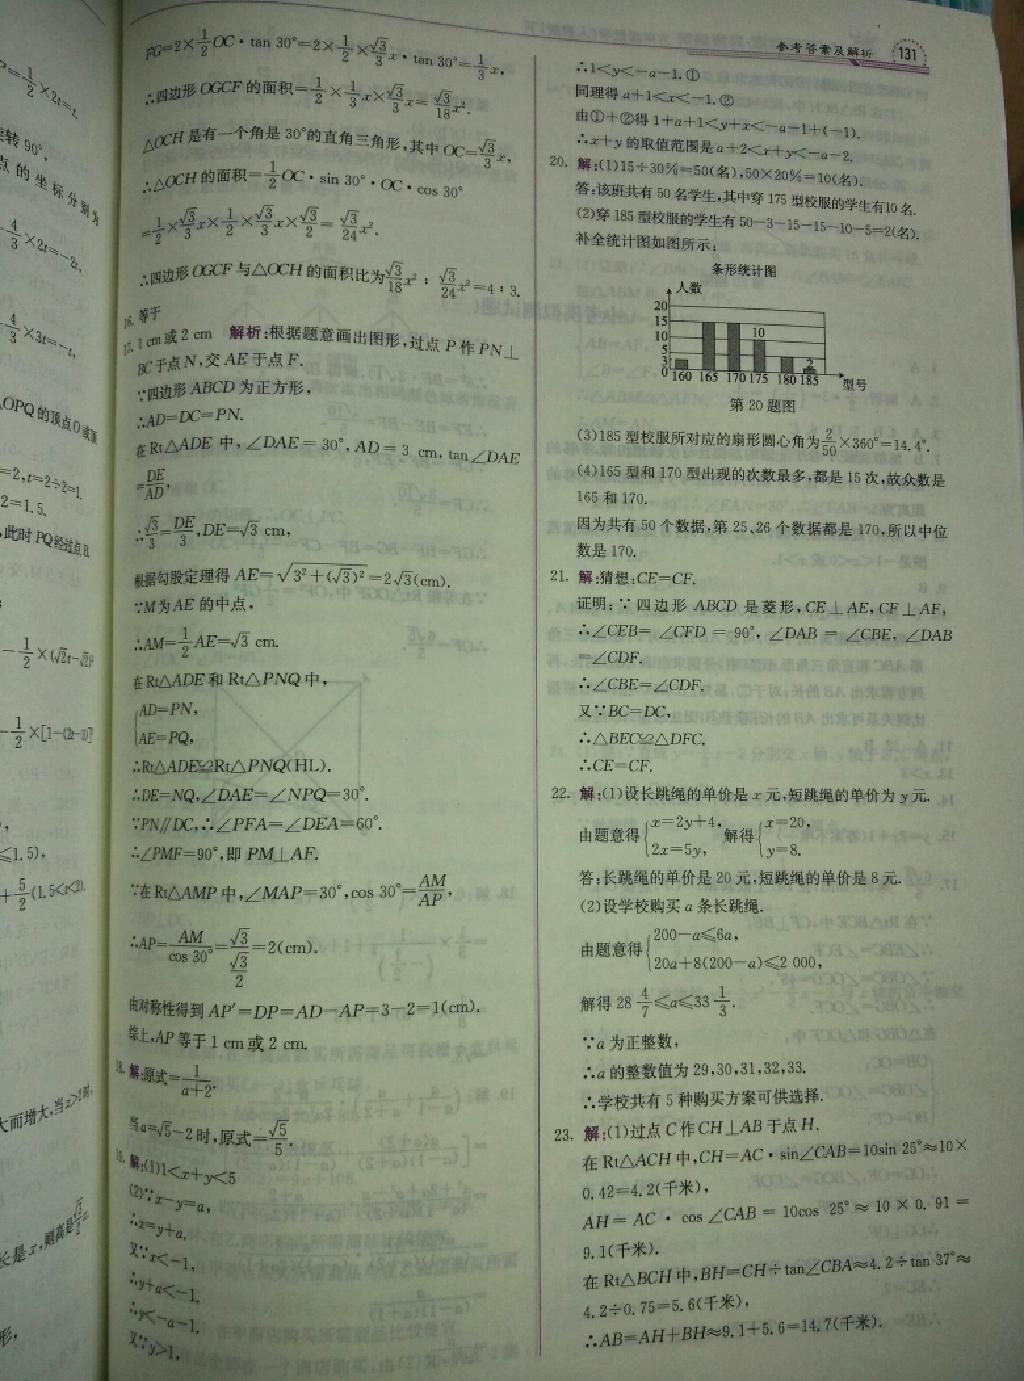 参考答案及解析 131
FG=2×1/2OC·tan 30°=2×1/2×√3/3x·tan 30°=1/3x,
∴四边形OGCF的面积=1/2×1/3x×√3/3x=√3/18x².
△OCH是有一个角是30°的直角三角形,其中OC=√3/3x,
∴△OCH的面积=1/2OC·sin 30°·OC·cos 30°
=1/2×√3/3x×1/2×√3/3x×√3/2=√3/24x².
∴四边形OGCF与△OCH的面积比为√3/18x²:√3/24x²=4:3.
16. 等于
17. 1 cm或2 cm 解析:根据题意画出图形,过点P作PN⊥
BC于点N,交AE于点F.
∵四边形ABCD为正方形,
∴AD=DC=PN.
在Rt△ADE中,∠DAE=30°,AD=3 cm,tan∠DAE
=DE/AD,
∴√3/3=DE/3,DE=√3 cm,
根据勾股定理得AE=√(3²+(√3)²)=2√3(cm).
∵M为AE的中点,
∴AM=1/2AE=√3 cm.
在Rt△ADE和Rt△PNQ中,
{AD=PN,
AE=PQ,
∴Rt△ADE≌Rt△PNQ(HL).
∴DE=NQ,∠DAE=∠NPQ=30°.
∵PN∥DC,∴∠PFA=∠DEA=60°.
∴∠PMF=90°,即PM⊥AF.
∵在Rt△AMP中,∠MAP=30°,cos 30°=AM/AP,
∴AP=AM/cos 30°=√3/(√3/2)=2(cm).
由对称性得到AP′=DP=AD-AP=3-2=1(cm).
综上,AP等于1 cm或2 cm.
18. 解:原式=1/(a+2).
当a=√5-2时,原式=√5/5.
19. 解:(1)1<x+y<5
(2)∵x-y=a,
∴x=y+a,
又∵x<-1,
∴y+a<-1,
∴y<-a-1,
又∵y>1,
∴1<y<-a-1.①
同理得a+1<x<-1.②
由①+②得1+a+1<y+x<-a-1+(-1).
∴x+y的取值范围是a+2<x+y<-a-2.
20. 解:(1)15÷30%=50(名),50×20%=10(名).
答:该班共有50名学生,其中穿175型校服的学生有10名.
(2)穿185型校服的学生有50-3-15-15-10-5=2(名).
补全统计图如图所示:
条形统计图
人数
20
15
10
5
3
0
10
2
160 165 170 175 180 185 型号
第20题图
(3)185型校服所对应的扇形圆心角为2/50×360°=14.4°.
(4)165型和170型出现的次数最多,都是15次,故众数是
165和170.
因为共有50个数据,第25、26个数据都是170,所以中位
数是170.
21. 解:猜想:CE=CF.
证明:∵四边形ABCD是菱形,CE⊥AE,CF⊥AF,
∴∠CEB=∠CFD=90°,∠DAB=∠CBE,∠DAB
=∠CDF.
∴∠CBE=∠CDF.
又∵BC=DC,
∴△BEC≌△DFC,
∴CE=CF.
22. 解:(1)设长跳绳的单价是x元,短跳绳的单价为y元.
由题意得{x=2y+4, 2x=5y, 解得{x=20, y=8.
答:长跳绳的单价是20元,短跳绳的单价是8元.
(2)设学校购买a条长跳绳.
由题意得{200-a≤6a, 20a+8(200-a)≤2 000,
解得28 4/7≤a≤33 1/3.
∵a为正整数,
∴a的整数值为29,30,31,32,33.
∴学校共有5种购买方案可供选择.
23. 解:(1)过点C作CH⊥AB于点H.
在Rt△ACH中,CH=AC·sin∠CAB=10sin 25°≈10×
0.42=4.2(千米),
AH=AC·cos∠CAB=10cos 25°≈10×0.91=
9.1(千米).
在Rt△BCH中,BH=CH÷tan∠CBA≈4.2÷tan 37°≈
4.2÷0.75=5.6(千米),
∴AB=AH+BH≈9.1+5.6=14.7(千米).